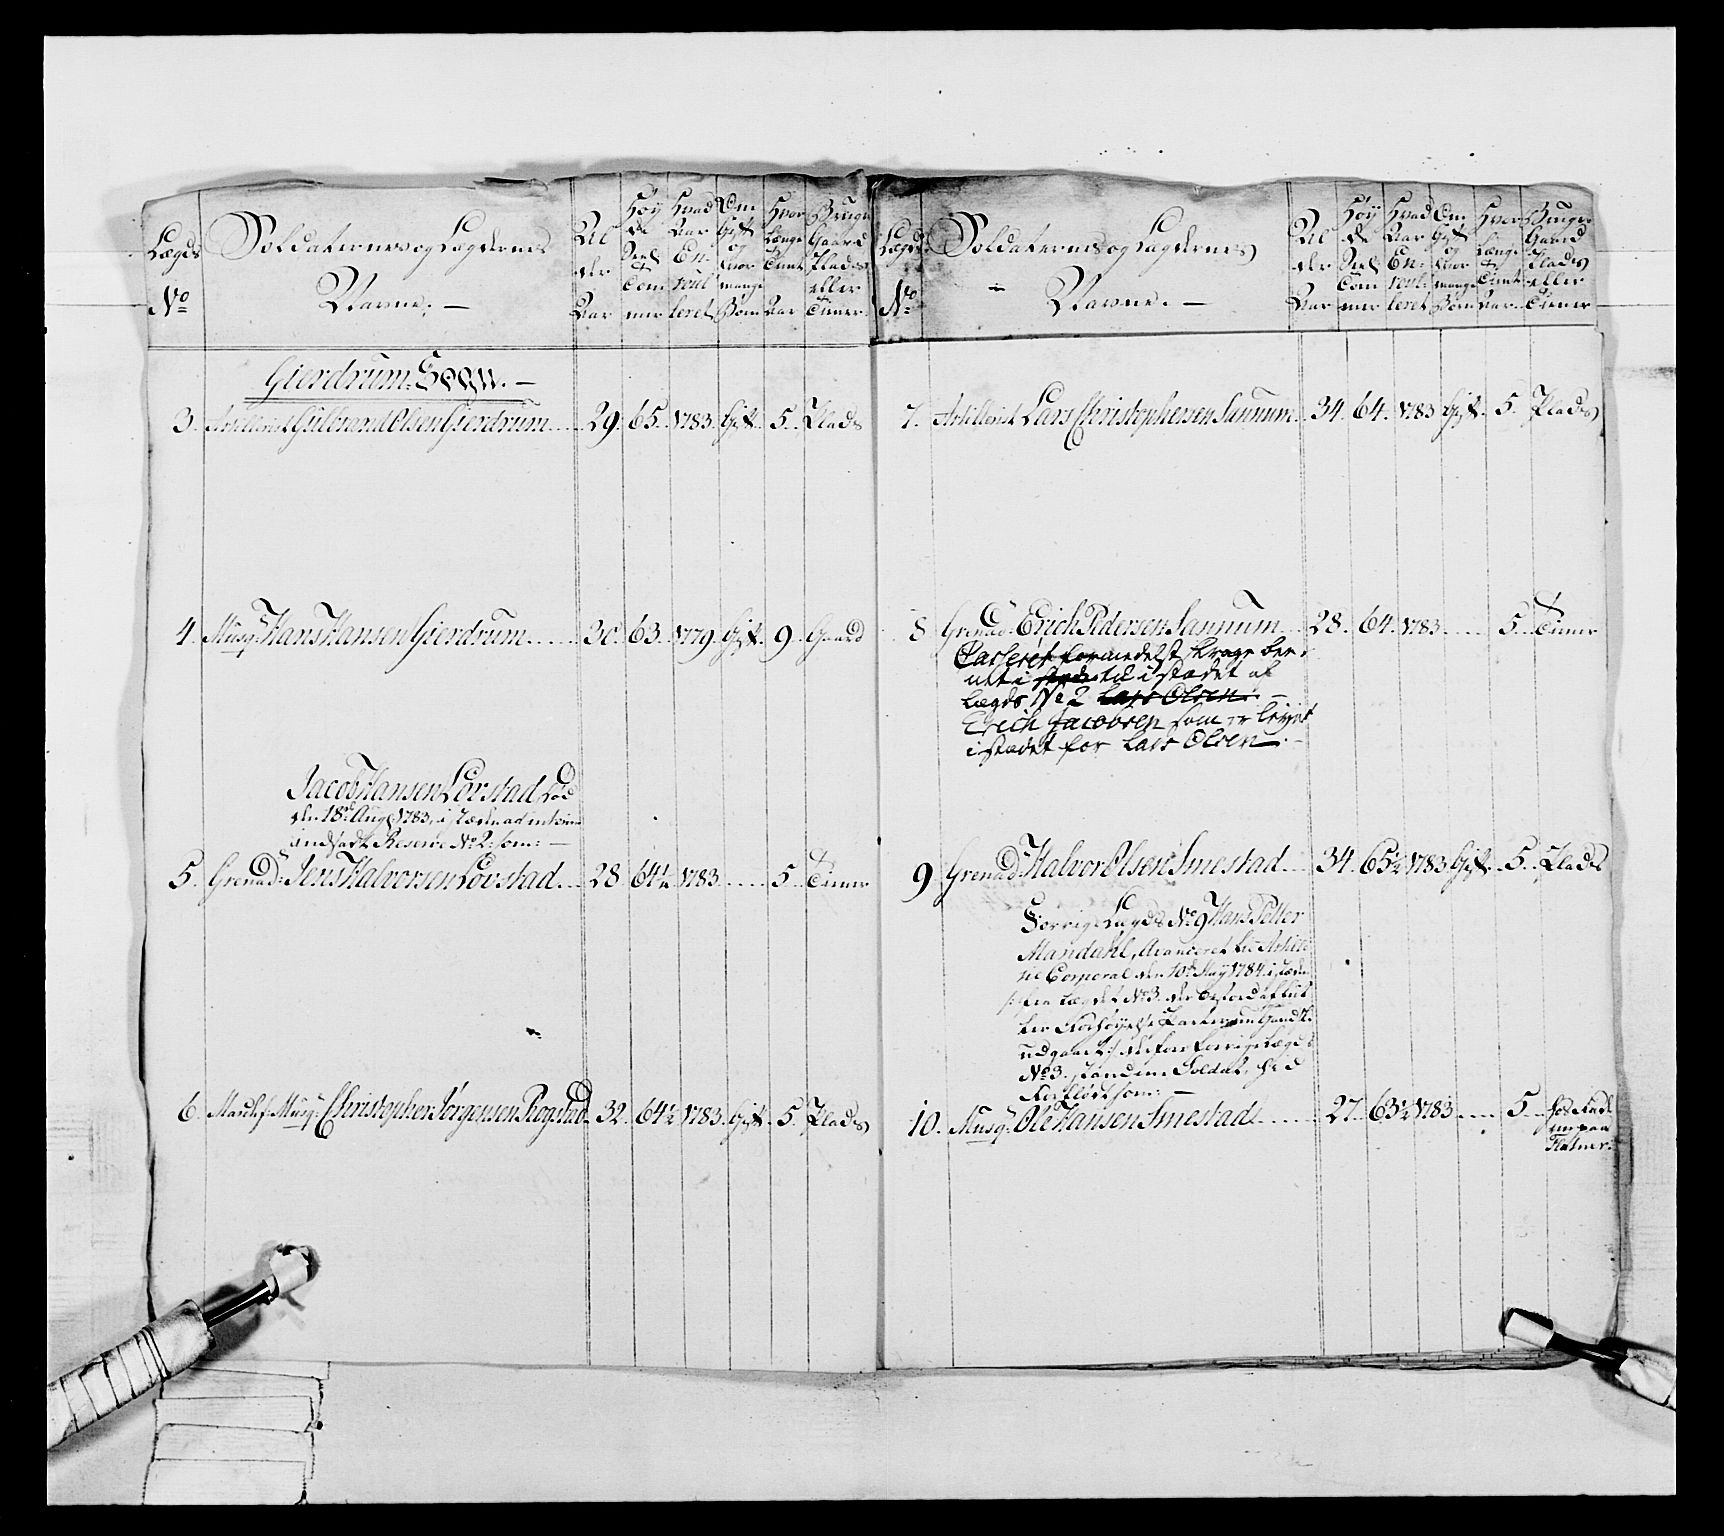 Lægds No
Soldaternes og Lagdernes Navne. —
Al der Aar
Høy de Siel Com mer
Hvad Aar En- roul leret
Om Gift og hvor mange Børn
Hvor længe tient Aar
Bruger Gaard Plads eller Tiener
Gierdrum Sogn. —
3. Artillerist Gulbrand Olsen Gierdrum 29. 65. 1783. Gift. 5. Plads
4. Musq. Hans Hansen Gierdrum 30. 63. 1779. Gift. 9. Gaard
Jacob Hansen Lovstad, død
den 18de Aug. 1783, i Stæden
indsadt Reserve No 2. som: —
5. Grenad: Jens Halvorsen Lovstad 28 64½ 1783. 5. Tiener
6. Musq. Christopher Jørgensen Rogstad 32. 64½ 1783. Gift. 5. Plads
Lægds No
Soldaternes og Lagdernes Navne. —
Al der Aar
Høy de Siel Com mer
Hvad Aar En- roul- leret
Om Gift og hvor mange Børn
Hvor længe tient Aar.
Bruger Gaard Plads eller Tiener
7. Artillerist Lars Christophersen Sannum 34. 64. 1783 Gift. 5. Plads
8 Grenad. Erich Pedersen Sannum 28. 64. 1783 5. Tiener
Casseret formedelst
i stædet af
Lægds No 2 Lars Olsen. —
Erich Jacobsen som er
i stædet for Lars Olsen. —
9 Grenad. Halvor Olsen Smestad 34. 65½ 1783 Gift. 5. Plads
Forrige Lægds No 9 Hans Petter
Mandahl, Avanceret til Artille
rie Corporal den 10de May 1784. i stæden
fra Lægdet No 3. der
udgaaet derfore forrige Lægds
No 3. Soldat,
som: —
10. Musq. Ole Hansen Smestad 27. 63½ 1783 5. hos
paa